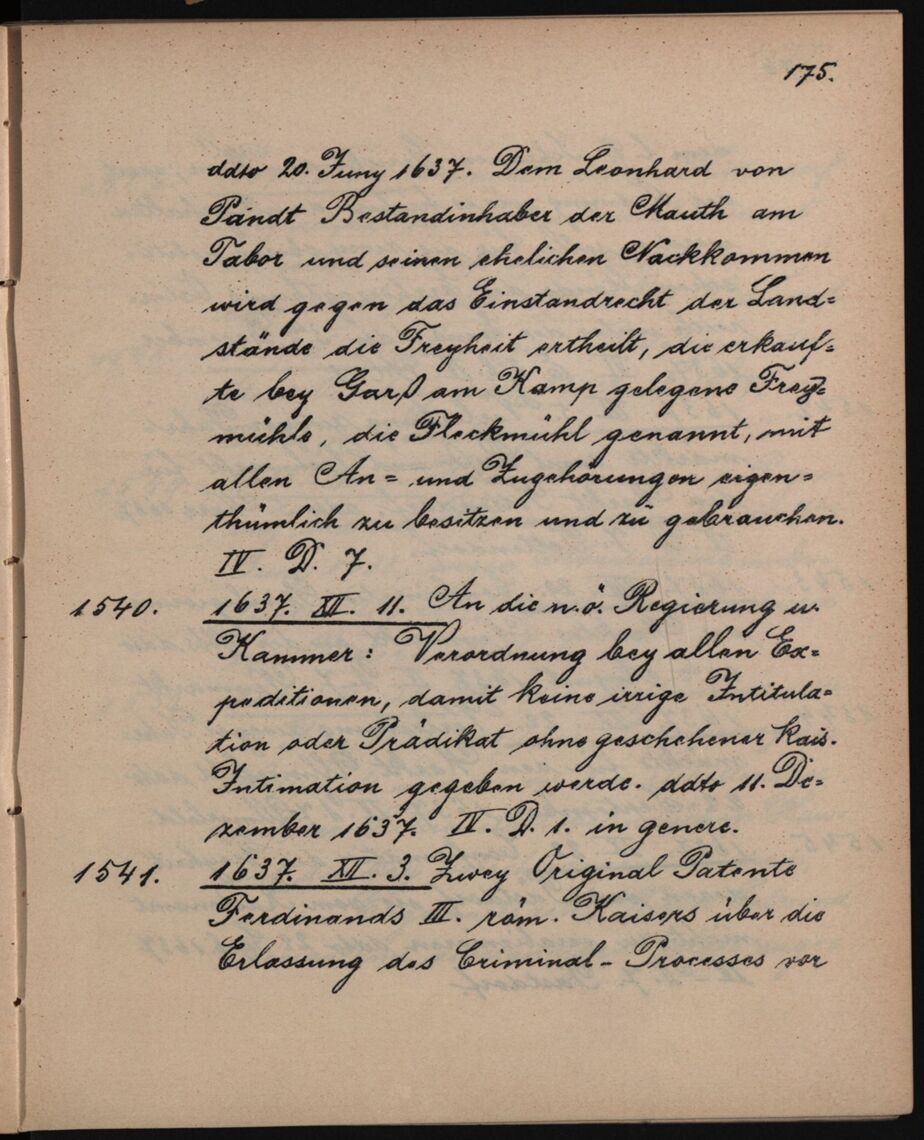 175.
ddto 20. Juny 1637. Dem Leonhard von
Pandt Bestandinhaber der Mauth am
Tabor und seinen ehelichen Nackkommen
wird gegen das Einstandrecht der Land=
stände die Freyheit ertheilt, die erkauf=
te bey Garß am Kamp gelegene Frey=
mühle, die Fleckmühl genannt, mit
allen An= und Zugehörungen eigen=
thümlich zu besitzen und zu gebrauchen.
IV. D. 7.
1540. 1637. XII. 11. An die n.ö. Regierung u.
Kammer: Verordnung bey allen Ex=
peditionen, damit keine irrige Intitula=
tion oder Prädikat ohne geschehener kais.
Intimation gegeben werde. ddto 11. De=
zember 1637. IV. D. 1. in genere.
1541. 1637. XII. 3. Zwey Original Patente
Ferdinands III. röm. Kaisers über die
Erlassung des Criminal-Processes vor